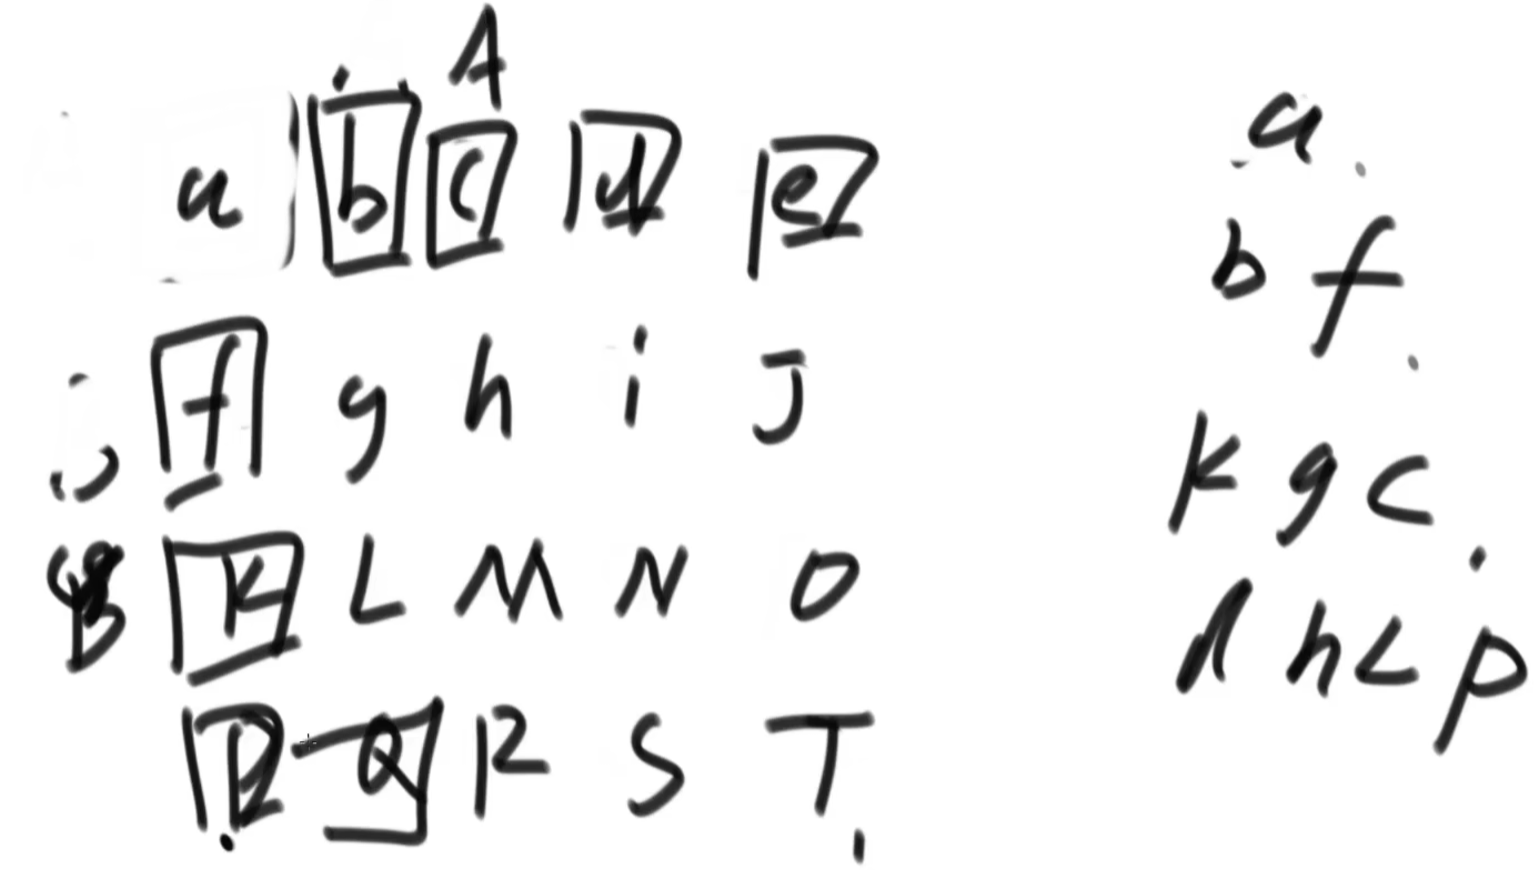 A
a b c d e
f g h i J
B K L M N O
P Q R S T
a
b f
K g c
d h L p